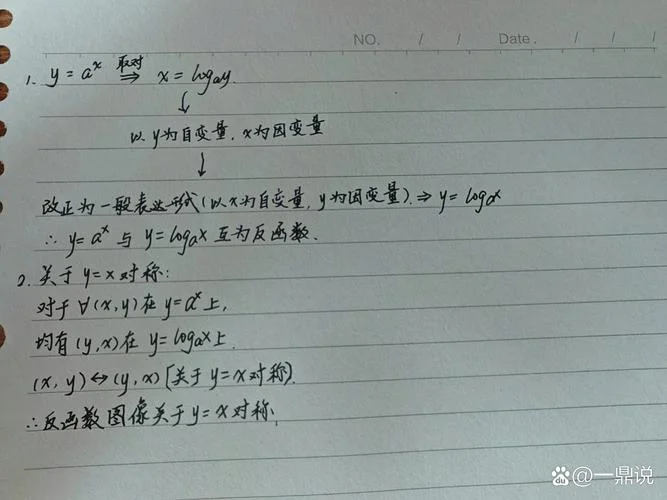 NO. / / Date. / / /
1. y = aˣ 取对⇒ x = logₐy.
↓
以 y为自变量, x为因变量
↓
改正为一般表达形式(以x为自变量, y为因变量). ⇒ y = logₐx
∴ y = aˣ 与 y = logₐx 互为反函数.
2. 关于 y = x 对称:
对于 ∀(x, y) 在 y = aˣ 上,
均有 (y, x) 在 y = logₐx 上.
(x, y) ↔ (y, x) [关于 y = x 对称].
∴ 反函数图像关于 y = x 对称.
@一鼎说